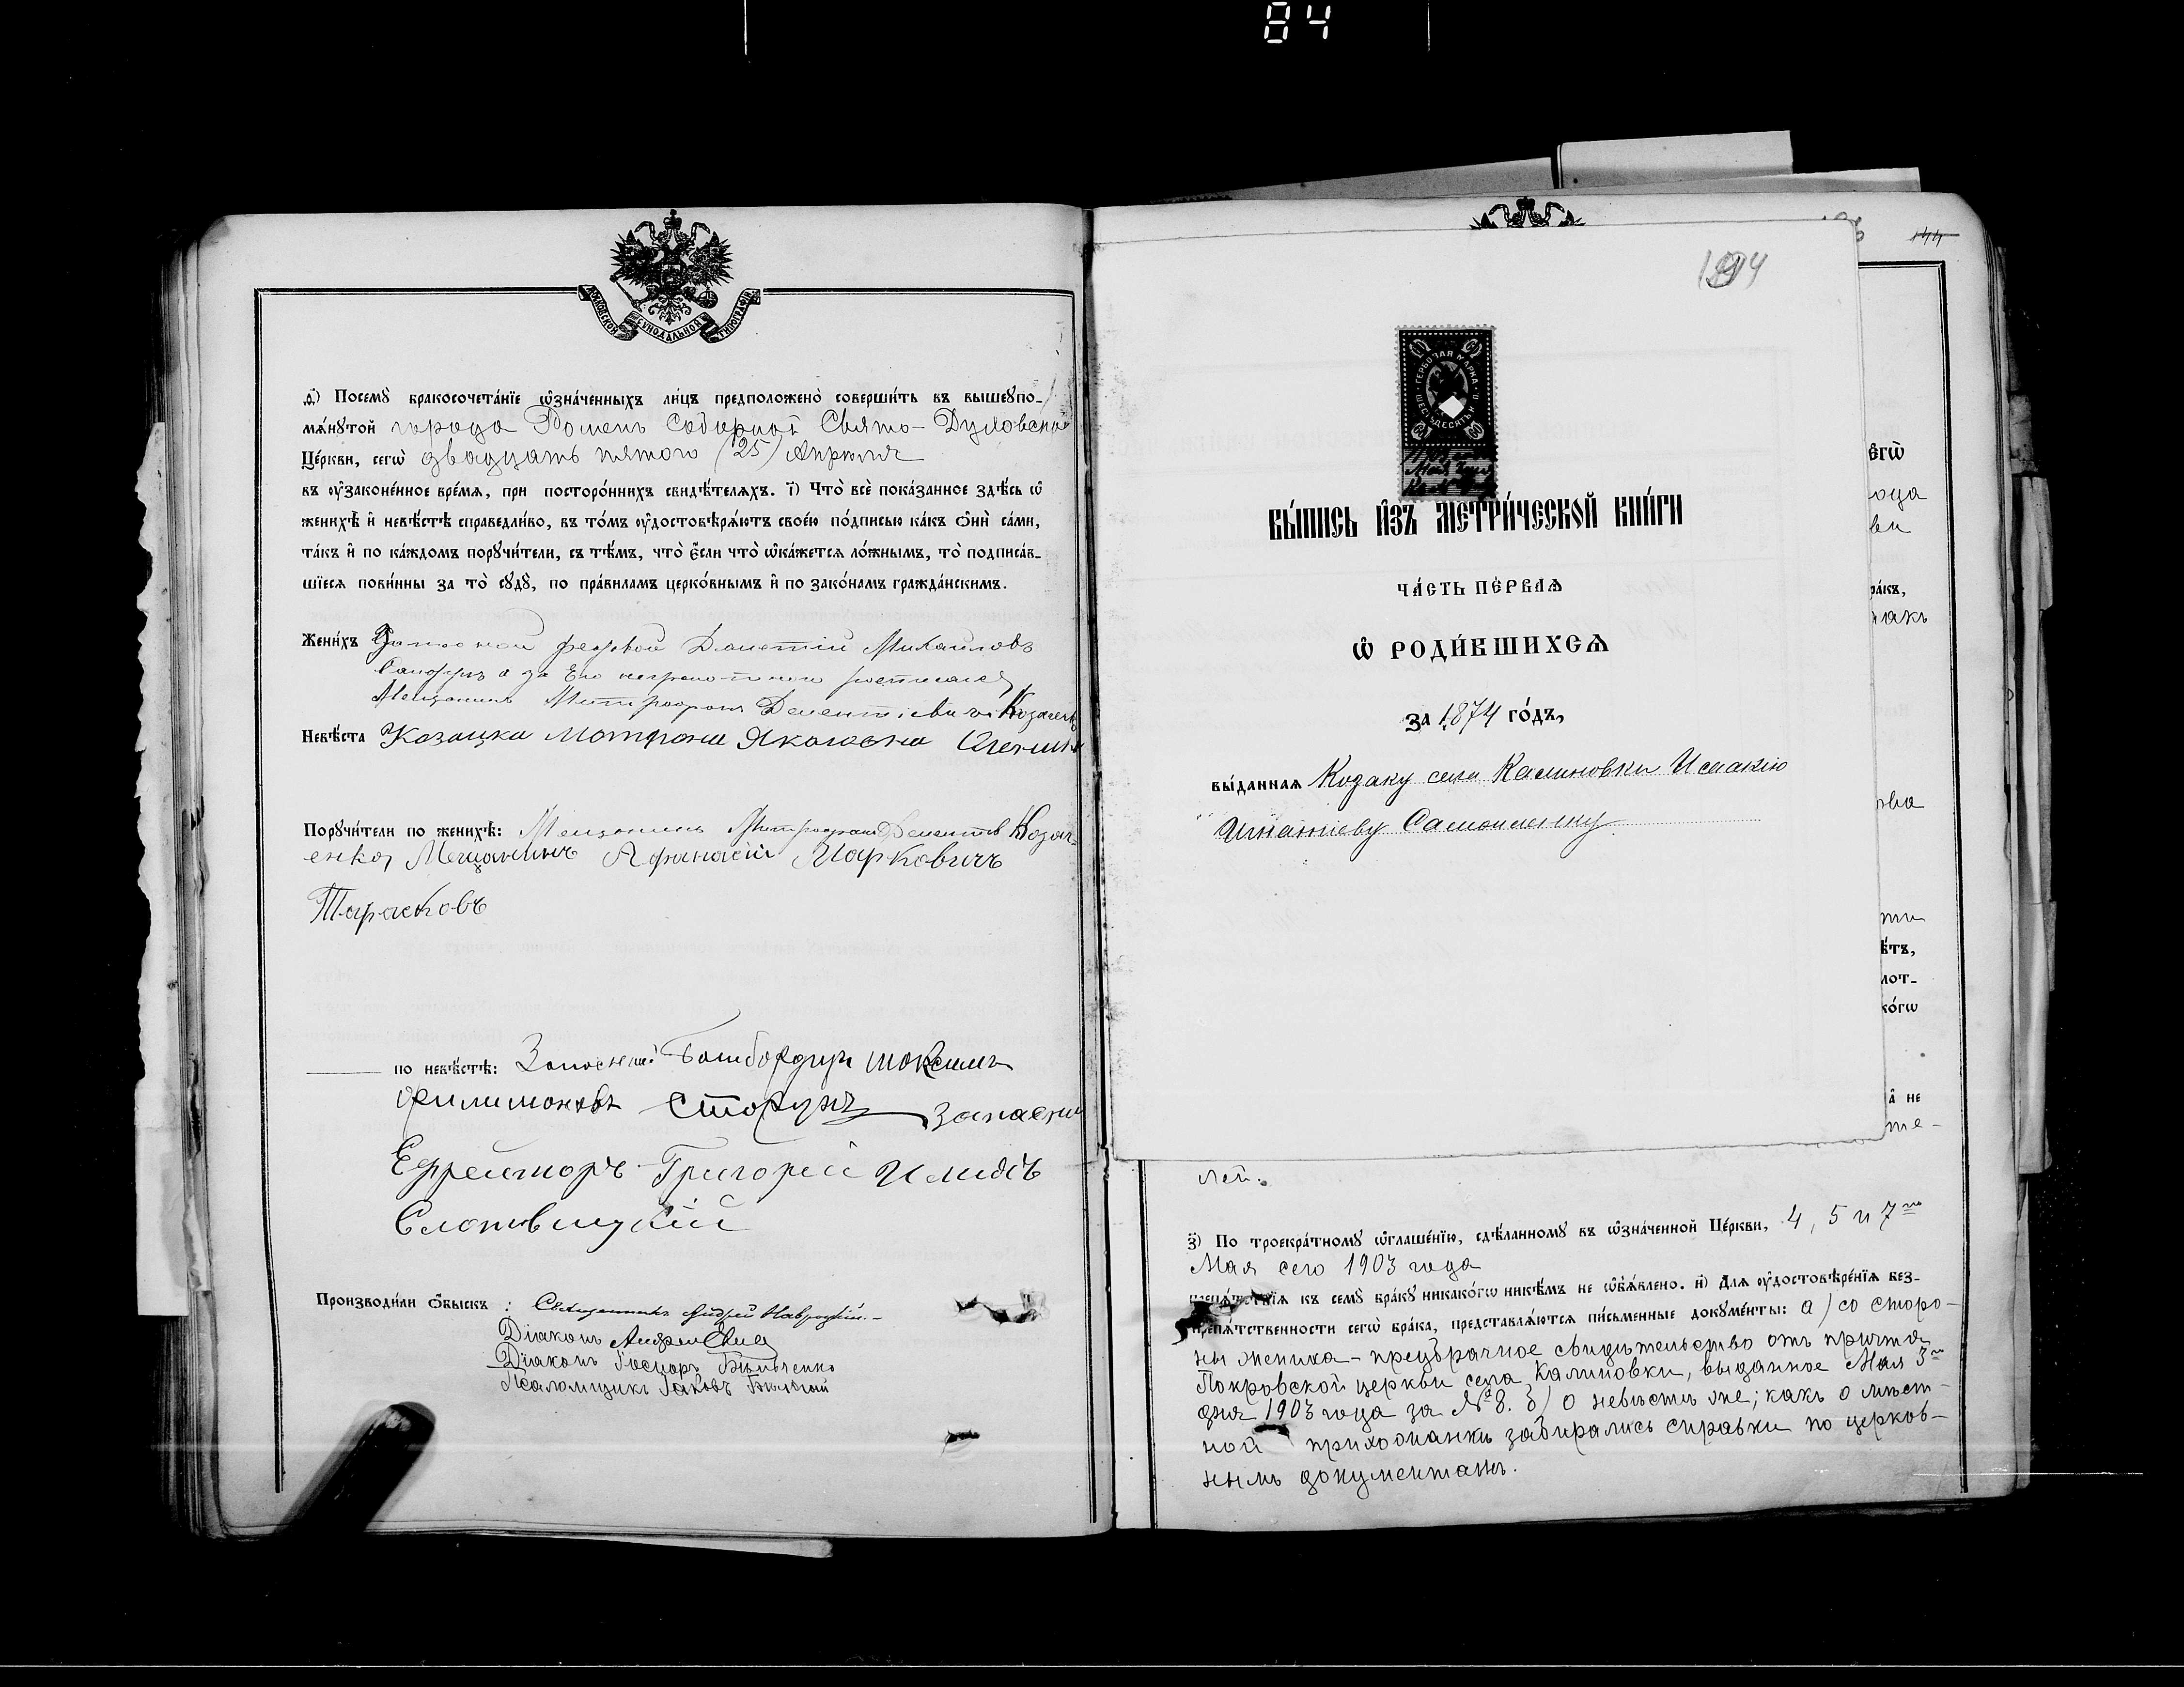 84
МОСКОВСКОЙ СѴНОДАЛЬНОЙ ТИПОГРАФІИ
д҃) Посемꙋ̀ бракосочета́нїе ѡ҆зна́ченныхъ ли́цъ предположено̀ соверши́ть въ вышеꙋпо-
мѧ́нꙋтой города Роменъ Соборной Свято-Духовской
Це́ркви, сегѡ̀ двадцать пятого (25) Апрѣля
въ ᲂу҆законе́нное вре́мѧ, при посторо́ннихъ свидѣ́телѧхъ. і҃) Что̀ всѐ пока́занное здѣ́сь ѡ҆
женихѣ̀ и҆ невѣ́стѣ справедли́во, въ то́мъ ᲂу҆достовѣрѧ́ютъ свое́ю по́дписью ка́къ ѻ҆нѝ са́ми,
та́къ и҆ по ка́ждомъ порꙋчи́тели, съ тѣ́мъ, что̀ є҆́сли что̀ ѡ҆ка́жетсѧ ло́жнымъ, то̀ подписа́в-
шїесѧ пови́нны за то̀ сꙋдꙋ̀, по пра́виламъ церко́внымъ и҆ по зако́намъ гражда́нскимъ.
Жени́хъ рядовой Михайловъ
а за Его неграмотного росписался
Мещанинъ Митрофанъ Дементіевичъ
Невѣ́ста Козачка Мотрона Яковлевна
Порꙋчи́тели по женихѣ̀: Мещанинъ Митрофанъ Дементіев Козач-
енко, Мещанинъ Афанасій Марковичъ
Тарасовъ
по невѣ́стѣ: Запасный Бомбордиръ Максимъ
Филимоновъ Сторунъ Запасний
Ефрейторъ Григорій
Слотвицкій
Производи́ли ѻ҆́быскъ : Священникъ Андрей Навроцкій.
Діаконъ Андрей
Діаконъ Бѣльченко
Псаломщикъ Іаковъ
144
194
ГЕРБОВАЯ МАРКА
ШЕСТЬДЕСЯТЪ К.
ВЫ́ПИСЬ И҆ЗЪ МЕТРИ́ЧЕСКОЙ КНИ́ГИ
ЧА́СТЬ ПЕ́РВАѦ
Ѡ҆ РОДИ́ВШИХСѦ
за 1874 го́дъ,
вы́даннаѧ Козаку села Калиновки Исаакію
Игнатіеву Самойленку
сегѡ̀
ода
ви
ра́къ,
акъ
ова
ти
ѣ́тъ,
лот-
ко́гѡ
а҆ не
те-
лей.
з҃) По троекра́тномꙋ ѡ҆глаше́нїю, сдѣ́ланномꙋ въ ѡ҆зна́ченной Це́ркви, 4, 5 и 7го
Мая сего 1903 года
препѧ́тствїѧ къ семꙋ̀ бра́кꙋ никако́гѡ никѣ́мъ не ѡ҆б̾ѧ́влено. и҃) Длѧ ᲂу҆достовѣре́нїѧ без-
препѧ́тственности сегѡ̀ бра́ка, представлѧ́ютсѧ пи́сьменные докꙋме́нты: а) со сторо-
ны жениха - предбрачное свидѣтельство отъ причта
Покровской церкви села Калиновки, выданное Мая 3го
дня 1903 года за № 8. б) о невѣстѣ же; какъ о мѣст-
ной прихожанки забирались справки по церков-
нымъ документамъ.